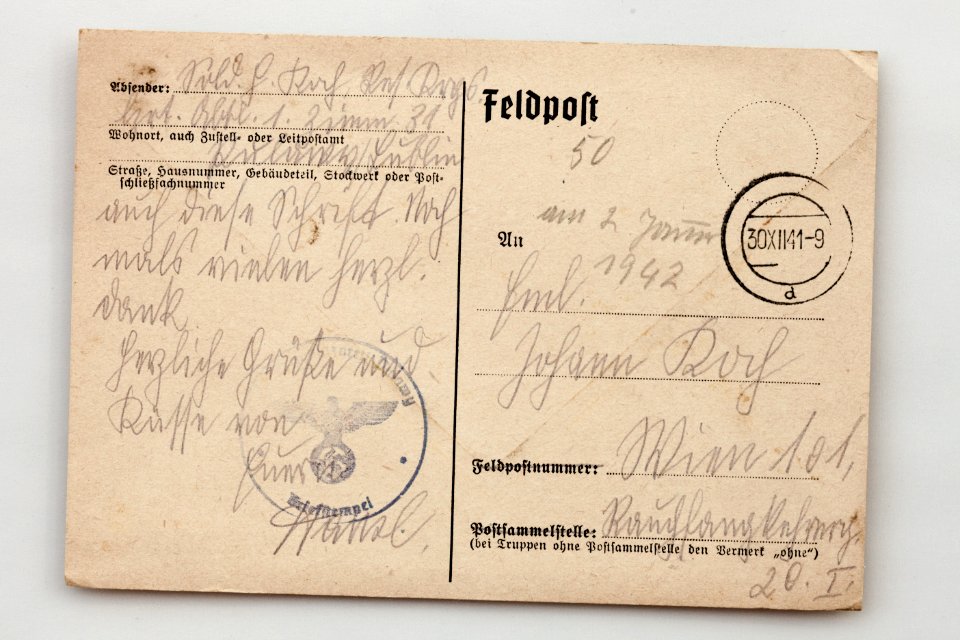 Absender: Sold. H. Koch Res. Krgs.
Art. Abtl. 1. Zimm. 21
Wohnort, auch Zustell- oder Leitpostamt
Pulawy Lublin
Straße, Hausnummer, Gebäudeteil, Stockwerk oder Post-
schließfachnummer
auch diese Schrift. Noch
mals vielen herzl.
dank.
Herzliche Grüße und
Küsse von
Euer
Hansl.
Briefstempel
Feldpost
50
am 2 Januar
1942
30XII41-9
d
An
Johann Koch
Feldpostnummer: Wien 101,
Postsammelstelle:
(bei Truppen ohne Postsammelstelle den Vermerk „ohne“)
20. I.